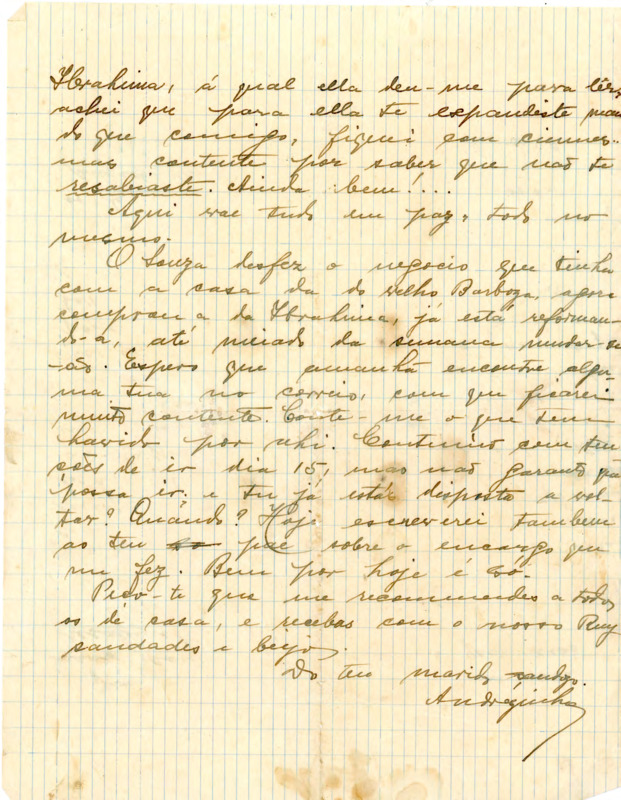 Ibrahima, á qual ella deu-me para lêr,
achei que para ella te expandiste mais
do que comigo, fiquei com ciumes..
mas contente por saber que não te
resabiaste. Ainda bem!...
Aqui vae tudo em paz, todo no
mesmo.
O Souza desfez o negocio que tinha
com a casa da do velho Barboza, agora
comprou a da Ibrahima, já está reforman-
do-a, até meiado da semana mudar-se-
-ão. Espero que amanhã encontre algu-
ma tua no correio, com que ficarei
muito contente. Conte-me o que tem
havido por ahi. Continúo com ten-
sões de ir dia 15, mas não garanto que
possa ir. e tu já estás disposta a vol-
tar? Quando? Hoje escreverei tambem
ao teu pae sobre o encargo que
me fez. Bem por hoje é só.
Peço-te que me recommendes a todos
os de casa, e recebas com o nosso Ruy
saudades e beijos.
Do teu marido saudoso.
Andréginho